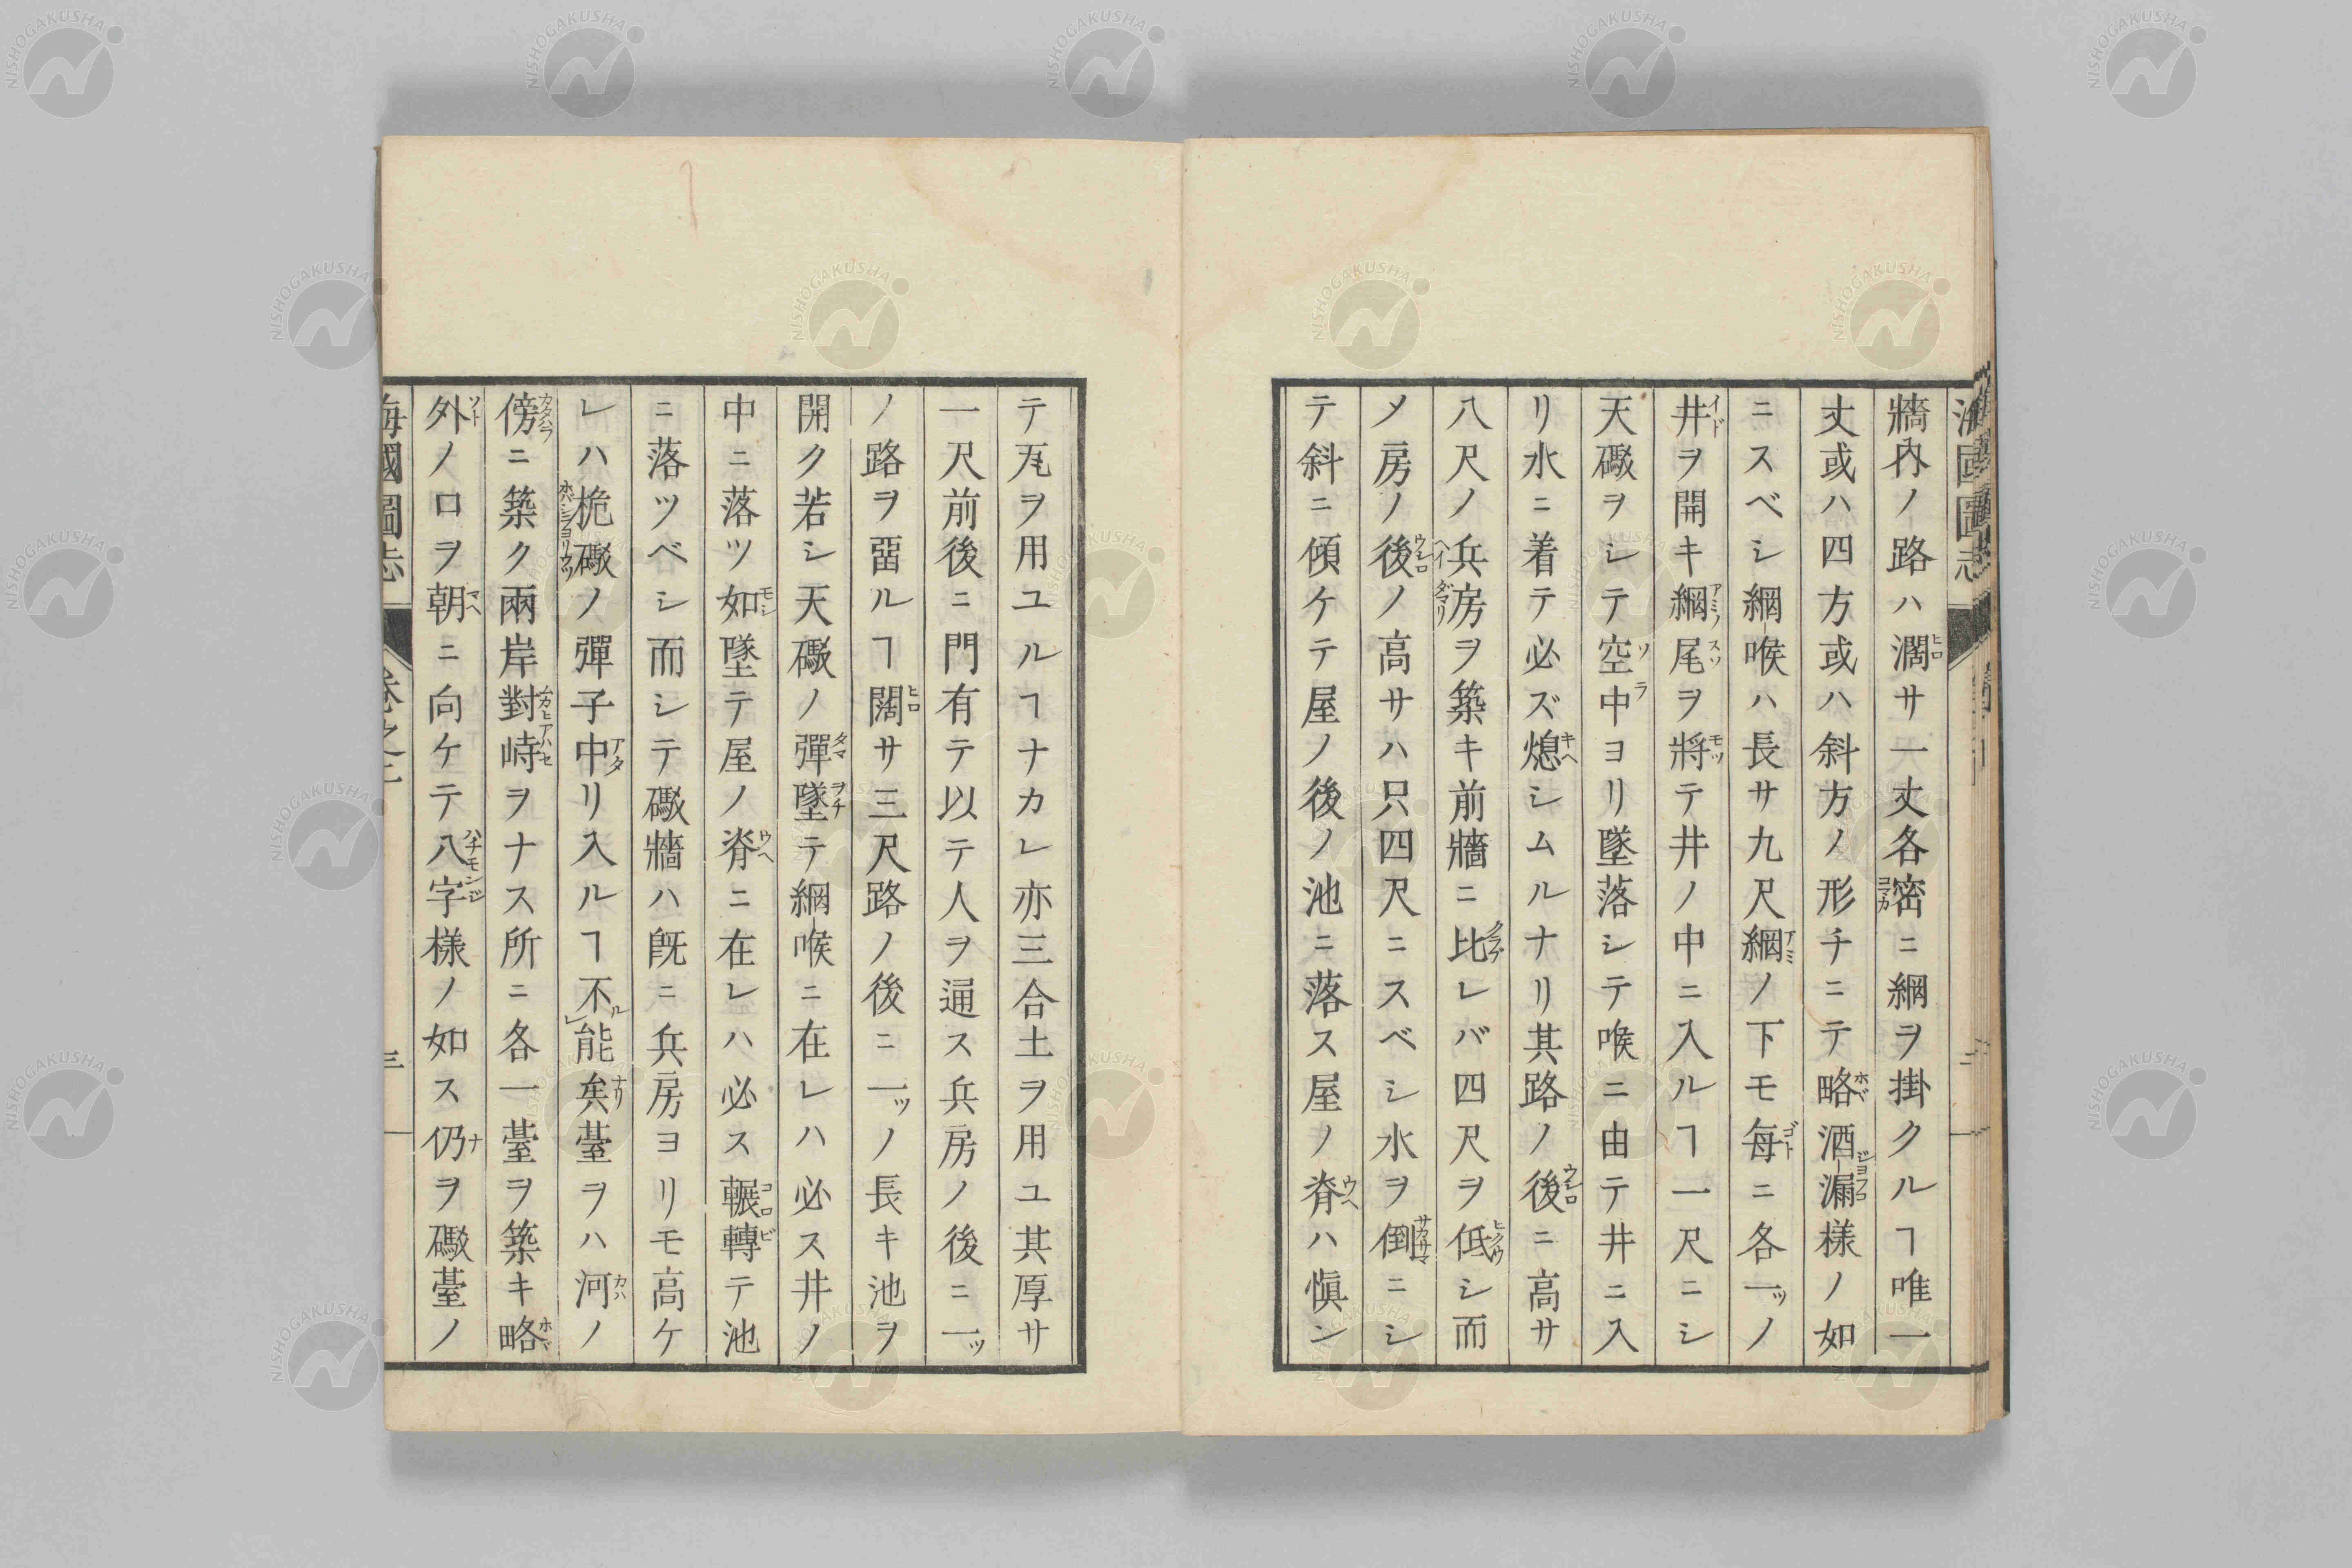 牆內ノ路ハ濶サ一丈各密ニ綱ヲ掛クルヿ唯一
丈或ハ四方或ハ斜方ノ形チニテ略酒漏様ノ如
ニスベシ綱喉ハ長サ九尺綱ノ下モ每ニ各一ッノ
井ヲ開キ綱尾ヲ將テ井ノ中ニ入ルヿ一尺ニシ
天礮ヲシテ空中ヨリ墜落シテ喉ニ由テ井ニ入
リ水ニ着テ必ズ熄シムルナリ其路ノ後ニ高サ
八尺ノ兵房ヲ築キ前牆ニ比レバ四尺ヲ低シ而
メ房ノ後ノ高サハ只四尺ニスベシ水ヲ倒ニシ
テ斜ニ傾ケテ屋ノ後ノ池ニ落ス屋ノ脊ハ愼ン
テ瓦ヲ用ユルヿナカレ亦三合土ヲ用ユ其厚サ
一尺前後ニ門有テ以テ人ヲ通ス兵房ノ後ニ一ッ
ノ路ヲ畱ルヿ闊サ三尺路ノ後ニ一ッノ長キ池ヲ
開ク若シ天礮ノ彈墜テ綱喉ニ在レハ必ス井ノ
中ニ落ツ如墜テ屋ノ脊ニ在レハ必ス輾轉テ池
ニ落ツベシ而シテ礮牆ハ既ニ兵房ヨリモ高ケ
レハ桅礮ノ彈子中リ入ルヿ不能矣䑓ヲハ河ノ
傍ニ築ク兩岸對峙ヲナス所ニ各一䑓ヲ築キ略
外ノロヲ朝ニ向ケテ八字樣ノ如ス仍ヲ礮䑓ノ
海國圖志 卷之二 三